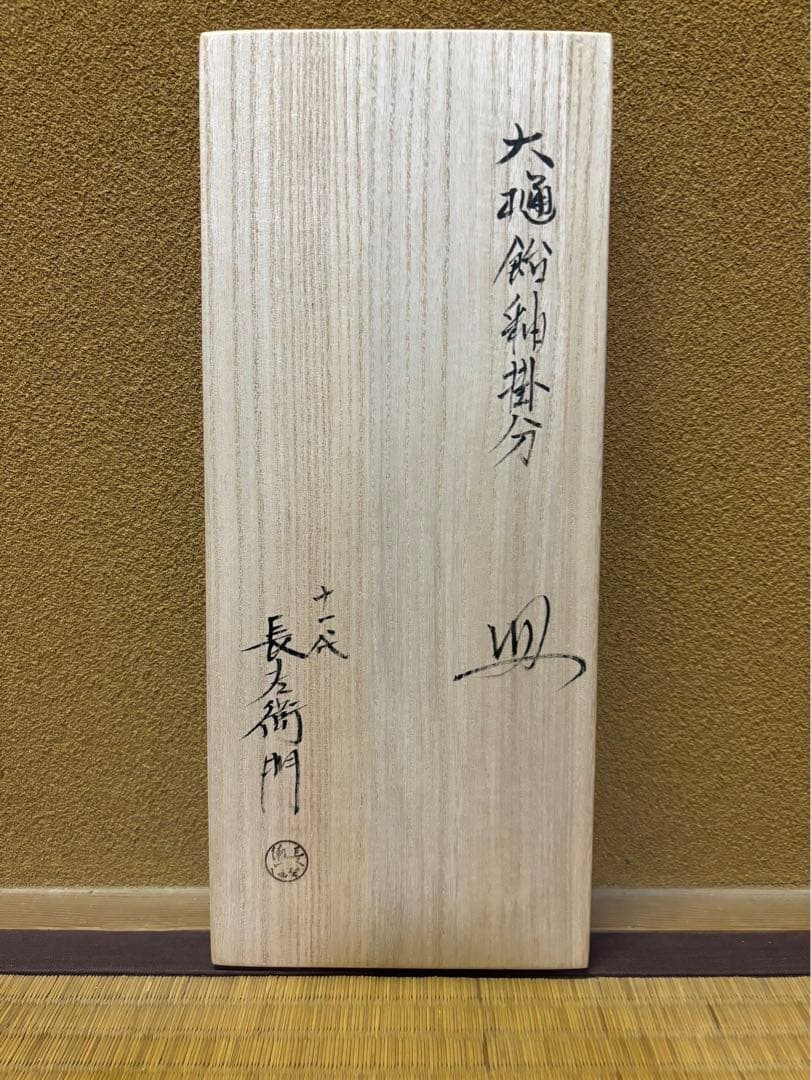 大樋飴釉掛分
皿
十一代
長左衛門